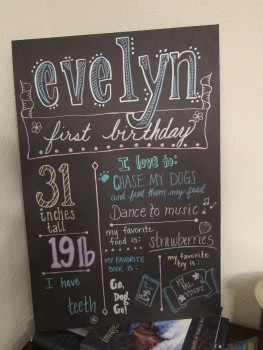 evelyn
first birthday
31
inches
tall
19lb
I have
teeth
I love to:
CHASE MY DOGS
and feed them my food
Dance to music
my favorite
food is:
strawberries
MY FAVORITE
BOOK IS:
Go,
Dog.
Go!
my favorite
toy is:
MY
BALL